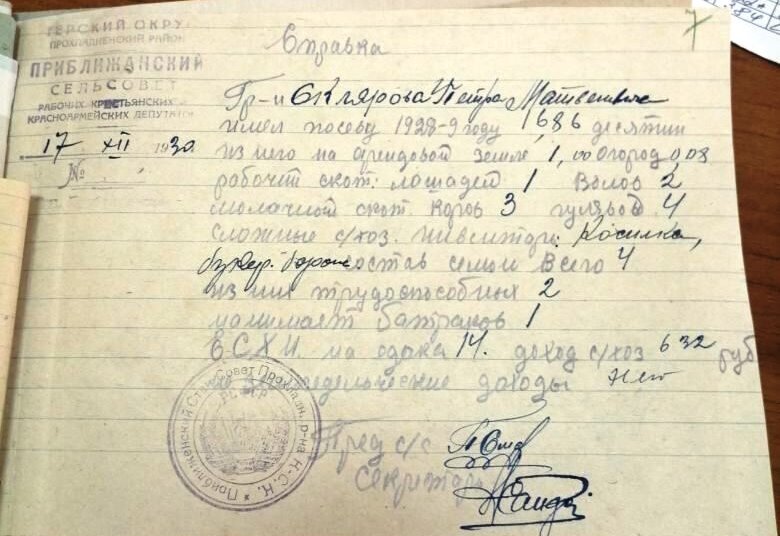 7
ТЕРСКИЙ ОКРУГ
ПРОХЛАДНЕНСКИЙ РАЙОН
ПРИБЛИЖАНСКИЙ
СЕЛЬСОВЕТ
РАБОЧИХ КРЕСТЬЯНСКИХ и
КРАСНОАРМЕЙСКИХ ДЕПУТАТОВ
17 XII 1930
№
Справка
Гр-н Склярова Петра Матвеевича
имел посеву 1928-9 году 1,686 десятин
из него на арендовой земле 1,00 огород 0,08
рабочит скот: лошадей 1 Волов 2
молочной скот. Коров 3 гулявой 4
Сложные с/хоз. Инвентарь: Косилка,
букер. борона состав семьи Всего 4
из них трудоспособных 2
нанимает батраков 1
В С.Х.Н. на едока 14. доход с/хоз 632 руб
не земледельческие доходы нет
Пред с/с
Секретарь
Приближенский Стан. Совет Прохладн. р-на Н-С.К.
РСФСР